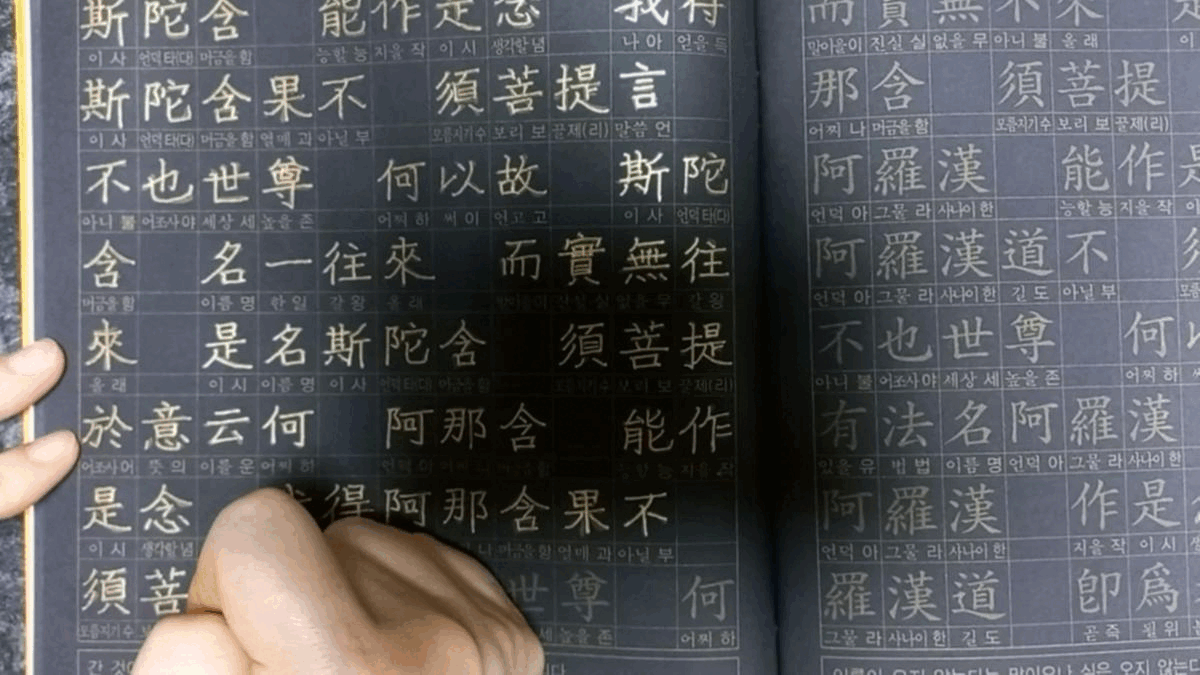 斯陀含 能作是念 我得
이 사 언덕 타(다) 머금을 함 능할 능 지을 작 이 시 생각할 념 나 아 얻을 득
斯陀含果不 須菩提言
이 사 언덕 타(다) 머금을 함 열매 과 아닐 부 모름지기 수 보리 보 끌 제(리) 말씀 언
不也世尊 何以故 斯陀
아니 불 어조사 야 세상 세 높을 존 어찌 하 써 이 연고 고 이 사 언덕 타(다)
含 名一往來 而實無往
머금을 함 이름 명 한 일 갈 왕 올 래 말이을 이 진실 실 없을 무 갈 왕
來 是名斯陀含 須菩提
올 래 이 시 이름 명 이 사 언덕 타(다) 머금을 함 모름지기 수 보리 보 끌 제(리)
於意云何 阿那含 能作
어조사 어 뜻 의 이를 운 어찌 하 언덕 아 어찌 나 머금을 함 능할 능 지을 작
是念 我得阿那含果不
이 시 생각할 념 머금을 함 열매 과 아닐 부
須菩 世尊 何
모름지기 수 세 높을 존 어찌 하
而實無不來
말이을 이 진실 실 없을 무 아니 불 올 래 이
那含 須菩提
어찌 나 머금을 함 모름지기 수 보리 보 끌 제(리)
阿羅漢 能作是
언덕 아 그물 라 사나이 한 능할 능 지을 작 이
阿羅漢道不 須
언덕 아 그물 라 사나이 한 길 도 아닐 부
不也世尊 何以
아니 불 어조사 야 세상 세 높을 존 어찌 하
有法名阿羅漢
있을 유 법 법 이름 명 언덕 아 그물 라 사나이 한
阿羅漢 作是
언덕 아 그물 라 사나이 한 지을 작 이 시
羅漢道 卽爲
그물 라 사나이 한 길 도 곧 즉 될 위